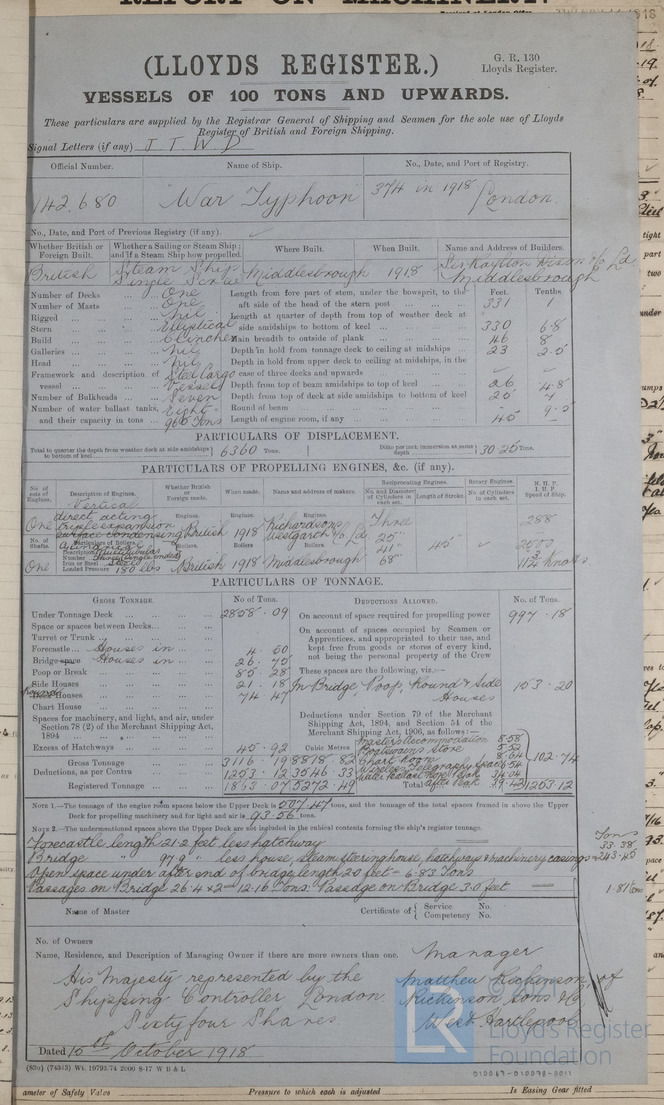 REPORT ON MACHINERY.
(LLOYDS REGISTER.)
G. R. 130
Lloyds Register.
VESSELS OF 100 TONS AND UPWARDS.
These particulars are supplied by the Registrar General of Shipping and Seamen for the sole use of Lloyds
Register of British and Foreign Shipping.
Signal Letters (if any) J T W D
Official Number. Name of Ship. No., Date, and Port of Registry.
142,680 "War Typhoon" 374 in 1918 London.
No., Date, and Port of Previous Registry (if any).
Whether British or Foreign Built. Whether a Sailing or Steam Ship; and if a Steam Ship how propelled. Where Built. When Built. Name and Address of Builders.
British Steam Ship Single Screw Middlesbrough 1918 Sir Raylton Dixon & Co Ld Middlesbrough
Number of Decks ... One Length from fore part of stem, under the bowsprit, to the Feet. Tenths.
Number of Masts ... One aft side of the head of the stern post 331 1
Rigged ... Nil Length at quarter of depth from top of weather deck at
Stern ... Elliptical side amidships to bottom of keel 330 6.8
Build ... Clincher Main breadth to outside of plank 46 8
Galleries ... Nil Depth in hold from tonnage deck to ceiling at midships 23 2.5
Head ... Nil Depth in hold from upper deck to ceiling at midships, in the
Framework and description of Steel Cargo case of three decks and upwards
vessel ... Vessel Depth from top of beam amidships to top of keel 26 4.8
Number of Bulkheads ... Seven Depth from top of deck at side amidships to bottom of keel 25
Number of water ballast tanks, Eight Round of beam
and their capacity in tons 960 Tons Length of engine room, if any 45
PARTICULARS OF DISPLACEMENT.
Total to quarter the depth from weather deck at side amidships to bottom of keel 6360 Tons. Ditto per inch immersion at same depth 30.25 Tons.
PARTICULARS OF PROPELLING ENGINES, &c. (if any).
No. of sets of Engines. Description of Engines. Whether British or Foreign made. When made. Name and address of makers. Reciprocating Engines. Rotary Engines. N.H.P. I.H.P. Speed of Ship.
No. and Diameter of Cylinders in each set. Length of Stroke. No. of Cylinders in each set.
One Vertical direct acting triple expansion surface condensing British 1918 Richardsons Westgarth & Co Ld Three 25" 41" 68" 45" 288
No. of Shafts. Particulars of Boilers. Boilers. Boilers. Boilers
Description Multitubular
Number
Iron or Steel Steel
One Loaded Pressure 180 lbs British 1918 Middlesbrough 11¾ Knots
PARTICULARS OF TONNAGE.
GROSS TONNAGE. No. of Tons. DEDUCTIONS ALLOWED. No. of Tons.
Under Tonnage Deck 2858.09 On account of space required for propelling power 997.18
Space or spaces between Decks On account of spaces occupied by Seamen or
Turret or Trunk Apprentices, and appropriated to their use, and
Forecastle Houses in 4.60 kept free from goods or stores of every kind,
Bridge space Houses in 26.75 not being the personal property of the Crew
Poop or Break 85.28 These spaces are the following, viz.:—
Side Houses 21.18 In Bridge, Poop, Round & Side Houses 153.20
Round Houses 74.47
Chart House
Spaces for machinery, and light, and air, under Deductions under Section 79 of the Merchant
Section 78 (2) of the Merchant Shipping Act, Shipping Act, 1894, and Section 54 of the
1894 Merchant Shipping Act, 1906, as follows:—
Excess of Hatchways 45.92 Cubic Metres Master's Accommodation 8.58
Boatswain's Store 5.52
Gross Tonnage 3116.19 8818.82 Chart Room 8.64
Deductions, as per Contra 1253.12 3546.33 Wireless Telegraphy space 6.54 102.74
Water Ballast Fore Peak 34.04
Registered Tonnage 1863.07 5272.49 Total After Peak 39.42 1253.12
NOTE 1.—The tonnage of the engine room spaces below the Upper Deck is 507.47 tons, and the tonnage of the total spaces framed in above the Upper
Deck for propelling machinery and for light and air is 93.56 tons.
NOTE 2.—The undermentioned spaces above the Upper Deck are not included in the cubical contents forming the ship's register tonnage.
Forecastle length 21.2 feet less hatchway Tons 33.38
Bridge " 97.9 " less house, steam steering house, hatchway & machinery casings 243.45
Open space under after end of bridge length 2.0 feet - 6.83 Tons
Passages on Bridge 26.4 x 2 - 12.16 Tons. Passage on Bridge 3.0 feet 1.81 Tons
Name of Master Certificate of { Service No. Competency No.
No. of Owners
Name, Residence, and Description of Managing Owner if there are more owners than one. Manager
His Majesty represented by the Matthew Rickinson of
Shipping Controller London. Rickinson Sons & Co
Sixty four Shares West Hartlepool
Dated 15th October 1918
(83o) (74343) Wt. 19793/74 2000 8-17 W B & L
© 2021 Lloyd's Register Foundation
LR
010067-010078-0011
ameter of Safety Valve Pressure to which each is adjusted Is Easing Gear fitted